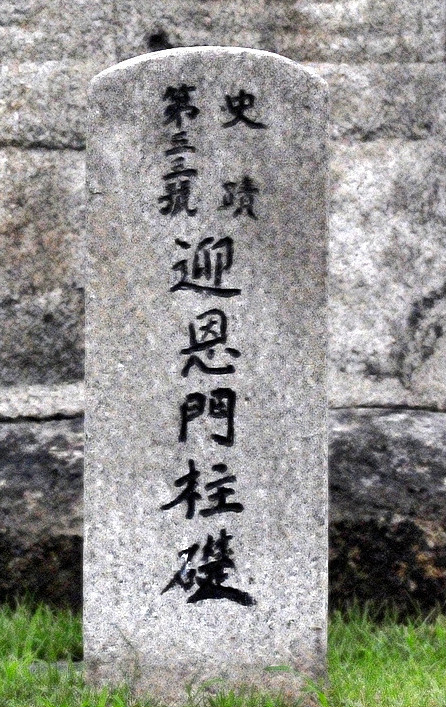 史蹟
第三三號
迎恩門柱礎